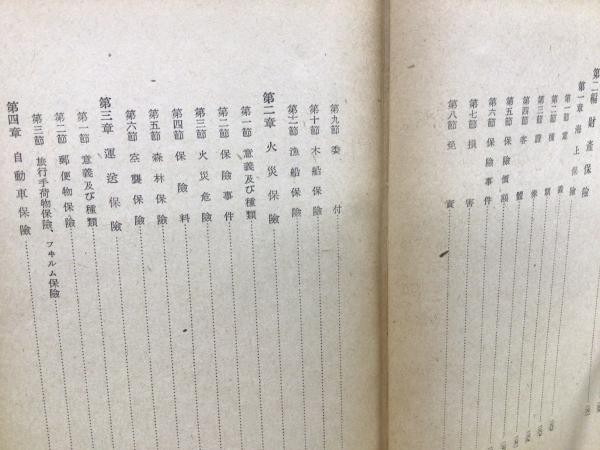 第二編 財產保險
第一章 海上保險
第一節 意義
第二節 種類
第三節 證券
第四節 客體
第五節 保險價額
第六節 保險事件
第七節 損害
第八節 免責
第九節 委付
第十節 木船保險
第十一節 漁船保險
第二章 火災保險
第一節 意義及び種類
第二節 保險事件
第三節 火災危險
第四節 保險料
第五節 森林保險
第六節 空襲保險
第三章 運送保險
第一節 意義及び種類
第二節 郵便物保險
第三節 旅行手荷物保險、フヰルム保險
第四章 自動車保險